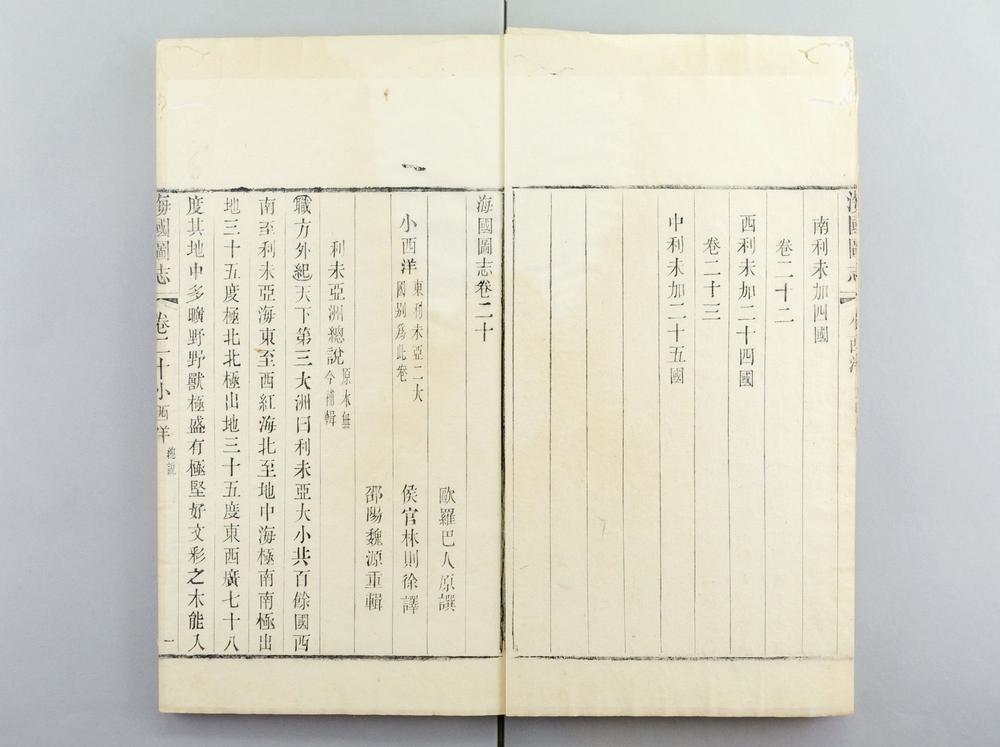 南利未加四國
卷二十二
西利未加二十四國
卷二十三
中利未加二十五國
海國圖志
海國圖志卷二十
歐羅巴人原譔
小西洋
東利未亞二大
國别爲此卷
侯官林則徐譯
邵陽魏源重輯
利未亞洲總說
原本無
今補輯
職方外紀天下第三大洲曰利未亞大小共百餘國西
南至利未亞海東至西紅海北至地中海極南南極出
地三十五度極北北極出地三十五度東西廣七十八
度其地中多曠野野獸極盛有極堅好文彩之木能入
海國圖志
卷二十小西洋
總說
一